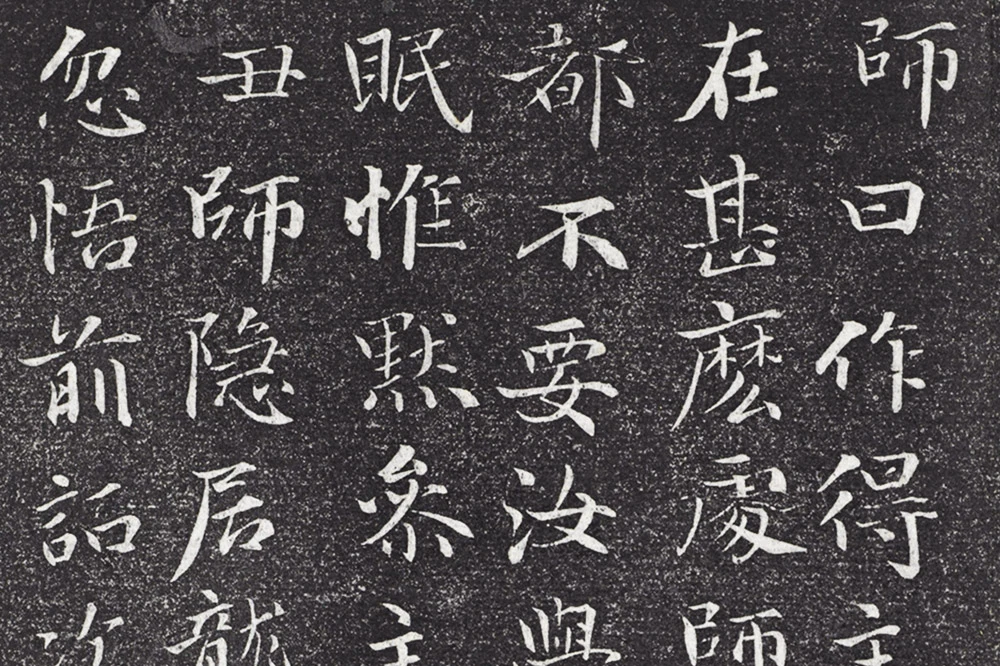 師曰作得主
在甚麽處師
都不要汝與
眠惟默參主
丑師隐居龍
忽悟前話